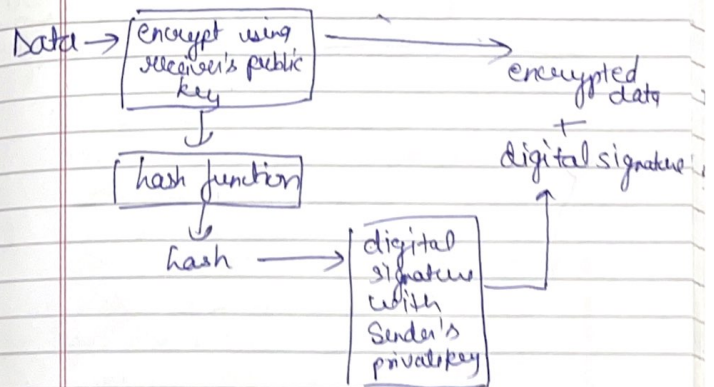 Data → encrypt using
receiver's public
key
encrypted
data
+
digital signature
hash function
hash
digital
signature
with
Sender's
private key